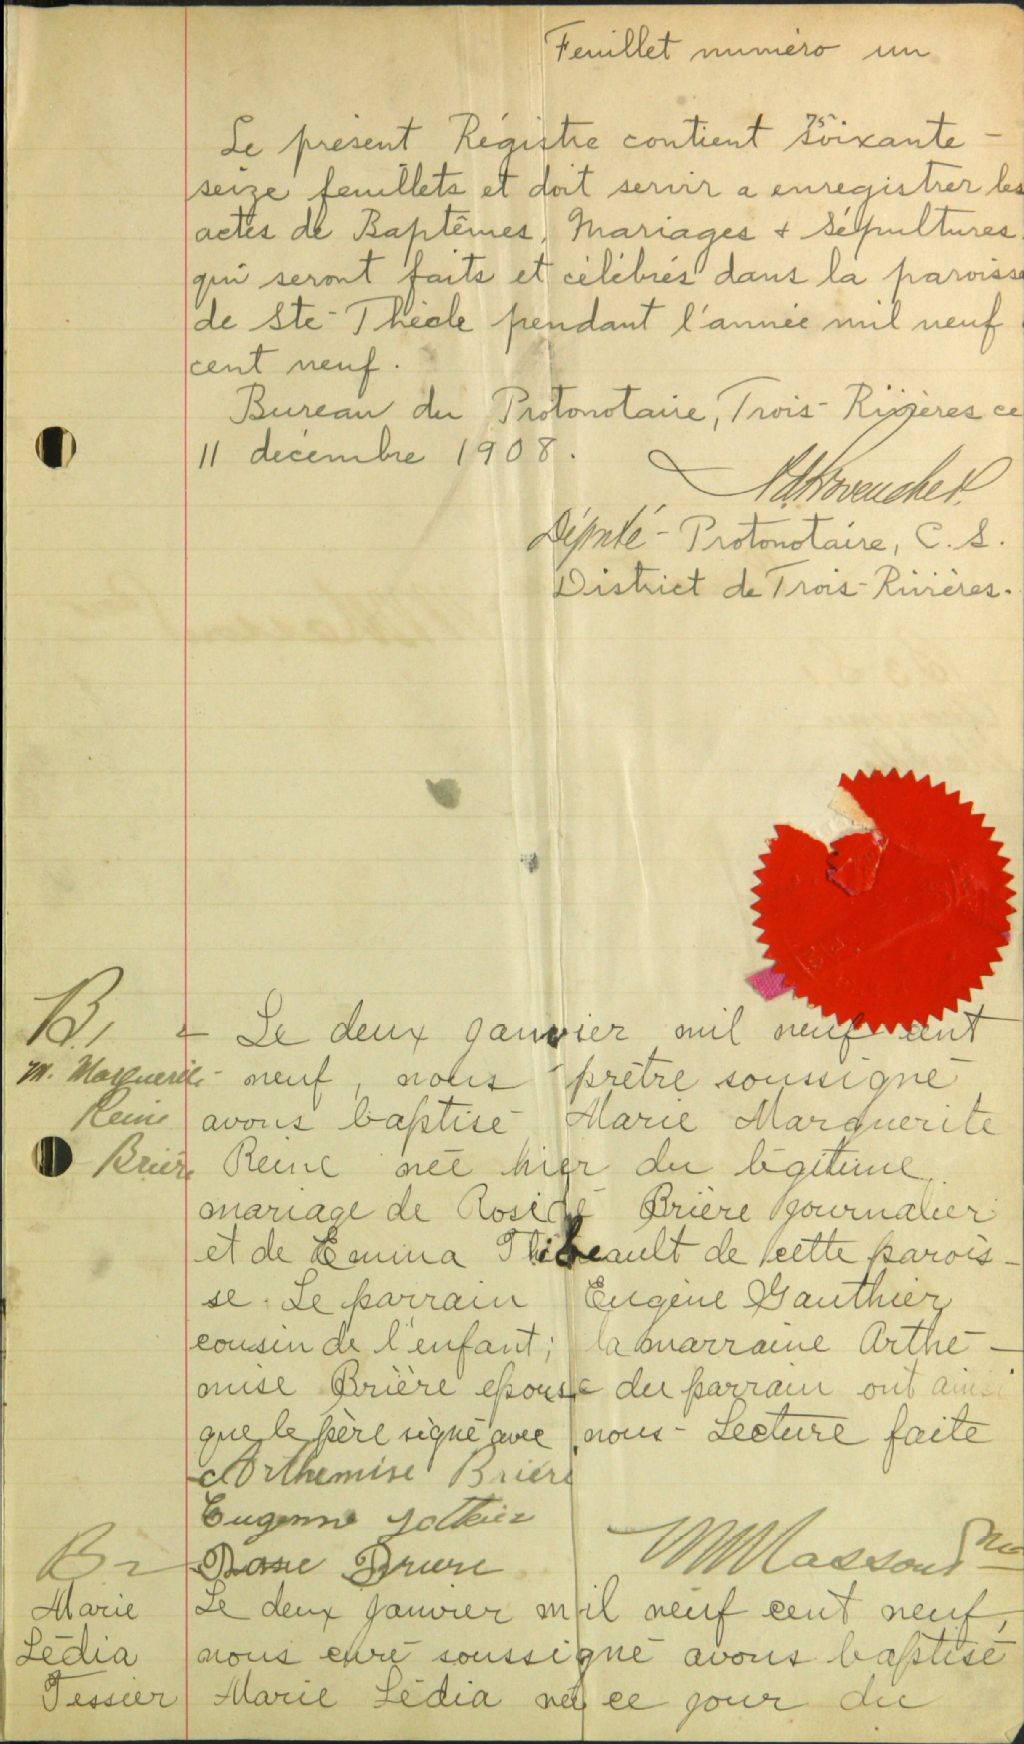 Feuillet numéro un
Le présent Régistre contient soixante-
75
seize feuillets et doit servir a enregistrer les
actes de Baptêmes, Mariages & Sépultures
qui seront faits et célébrés dans la paroisse
de Ste-Thècle pendant l'année mil neuf
cent neuf.
Bureau du Protonotaire, Trois-Rivières ce
11 décembre 1908.
Provencher
Député-Protonotaire, C. S.
District de Trois-Rivières.
B1 - Le deux janvier mil neuf cent
M. Marguerite neuf, nous prêtre soussigné
Reine avons baptisé Marie Marguerite
Brière Reine née hier du légitime
mariage de Brière journalier
et de Emma Thibeault de cette parois-
se. Le parrain Eugène Gauthier
cousin de l'enfant; la marraine Arthé-
mise Brière epouse du parrain ont ainsi
que le père signé avec nous - Lecture faite
Arthemise Brière
Eugenne
Briere Masson
B2 Le deux janvier mil neuf cent neuf,
Marie nous curé soussigné avons baptisé
Lédia Marie Lédia née ce jour du
Tessier